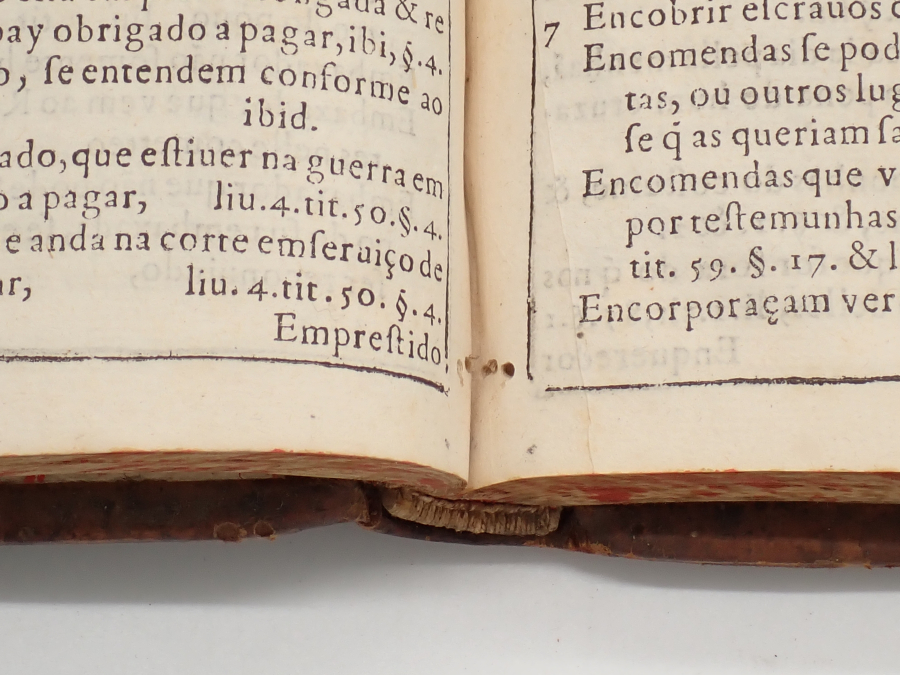 & re
pay obrigado a pagar, ibi, §. 4.
, ſe entendem conforme ao
ibid.
ado, que eſtiuer na guerra em
o a pagar, liu. 4. tit. 50. §. 4.
e anda na corte em ſeruiço de
ar, liu. 4. tit. 50. §. 4.
Empreſtido
7
Encobrir eſcrauos
Encomendas ſe pod
tas, ou outros lug
ſe q̃ as queriam ſa
Encomendas que v
por teſtemunhas
tit. 59. §. 17. & l
Encorporaçam ver